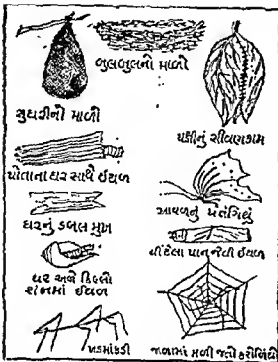 બુલબુલનો માળો
સુઘરીનો માળો
પક્ષીનું સીવણકામ
પોતાના ઘર સાથે ઈયળ
આવળનું પતંગિયું
ઘરનું ડબલ મુખ
વીંટેલા પાન જેવી ઈયળ
ઘર અને કિલ્લો
ઈયળ
ખડમાંકડી
જાળામાં મળી જતો કરોળિયો